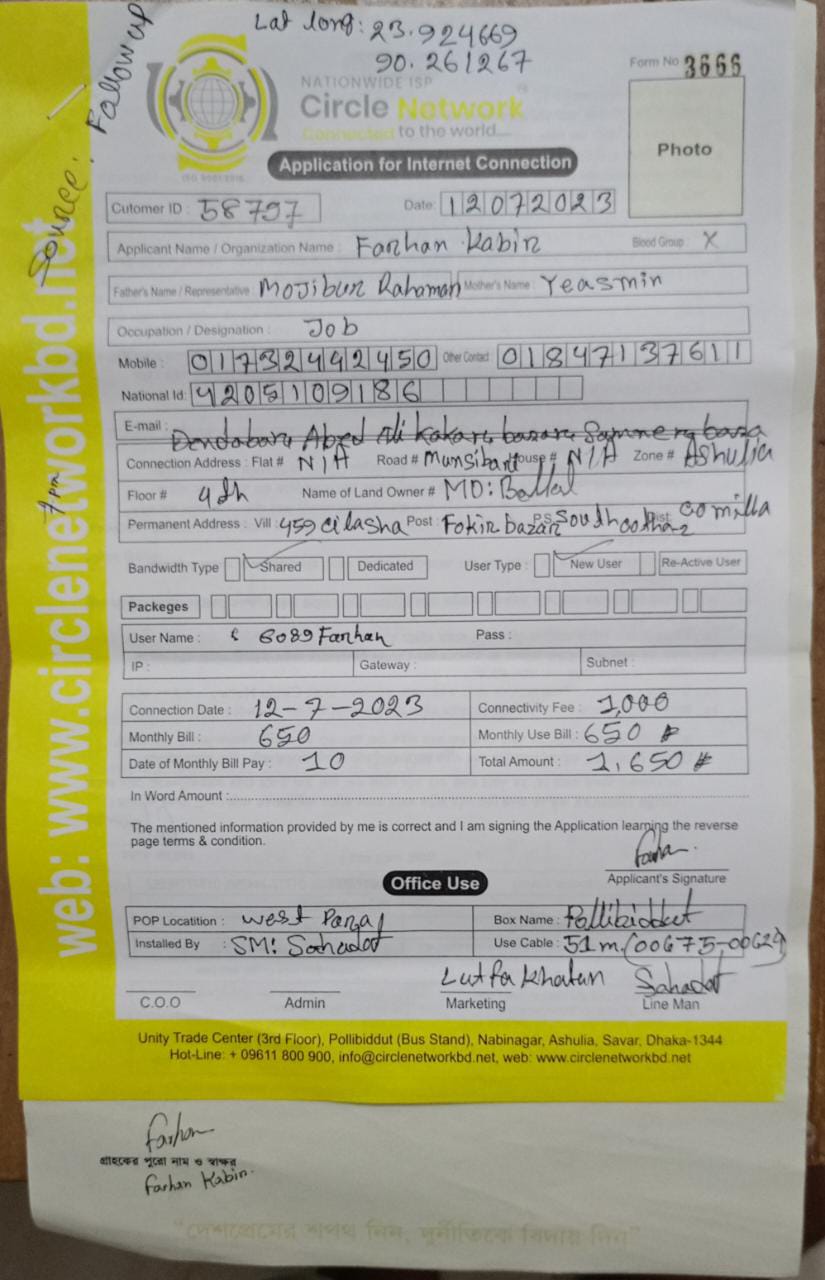 Lat long: 23.924669
90.261267
Source: Follow up
Form No 3666
NATIONWIDE ISP
Circle Network
Connected to the world....
ISO 9001:2015
Photo
Application for Internet Connection
Cutomer ID : 58797 Date: 12072023
Applicant Name / Organization Name : Farhan Kabir Blood Group : X
Father's Name / Representative Mojibur Rahaman Mother's Name : Yeasmin
Occupation / Designation : Job
Mobile : 01732442450 Other Contact : 01847137611
National Id: 4205109186
E-mail :
Dendabar, Abed Ali kakar, bazar,
Connection Address : Flat # N/A Road # Munsibari House # N/A Zone # Ashulia
Floor # 4th Name of Land Owner # MD: Bellal
Permanent Address : Vill : 459 Post : Fokir bazar P.S Dist Comilla
Bandwidth Type Shared Dedicated User Type : New User Re-Active User
Packeges
User Name : 6089Farhan Pass :
IP : Gateway : Subnet :
Connection Date : 12-7-2023 Connectivity Fee : 1,000
Monthly Bill : 650 Monthly Use Bill : 650
Date of Monthly Bill Pay : 10 Total Amount : 1,650
In Word Amount :
The mentioned information provided by me is correct and I am signing the Application learning the reverse
page terms & condition.
Applicant's Signature
Office Use
POP Locatition : West Para Box Name : Pollibiddut
Installed By : SM: Sahadat Use Cable : 51m (00675-00624)
Lutfa Khatun Sahadat
C.O.O Admin Marketing Line Man
Unity Trade Center (3rd Floor), Pollibiddut (Bus Stand), Nabinagar, Ashulia, Savar, Dhaka-1344
Hot-Line: + 09611 800 900, info@circlenetworkbd.net, web: www.circlenetworkbd.net
web: www.circlenetworkbd.net
7 pm
Farhan
গ্রাহকের পুরো নাম ও স্বাক্ষর
Farhan Kabir.
"দেশপ্রেমের শপথ নিন, দুর্নীতিকে বিদায় দিন"